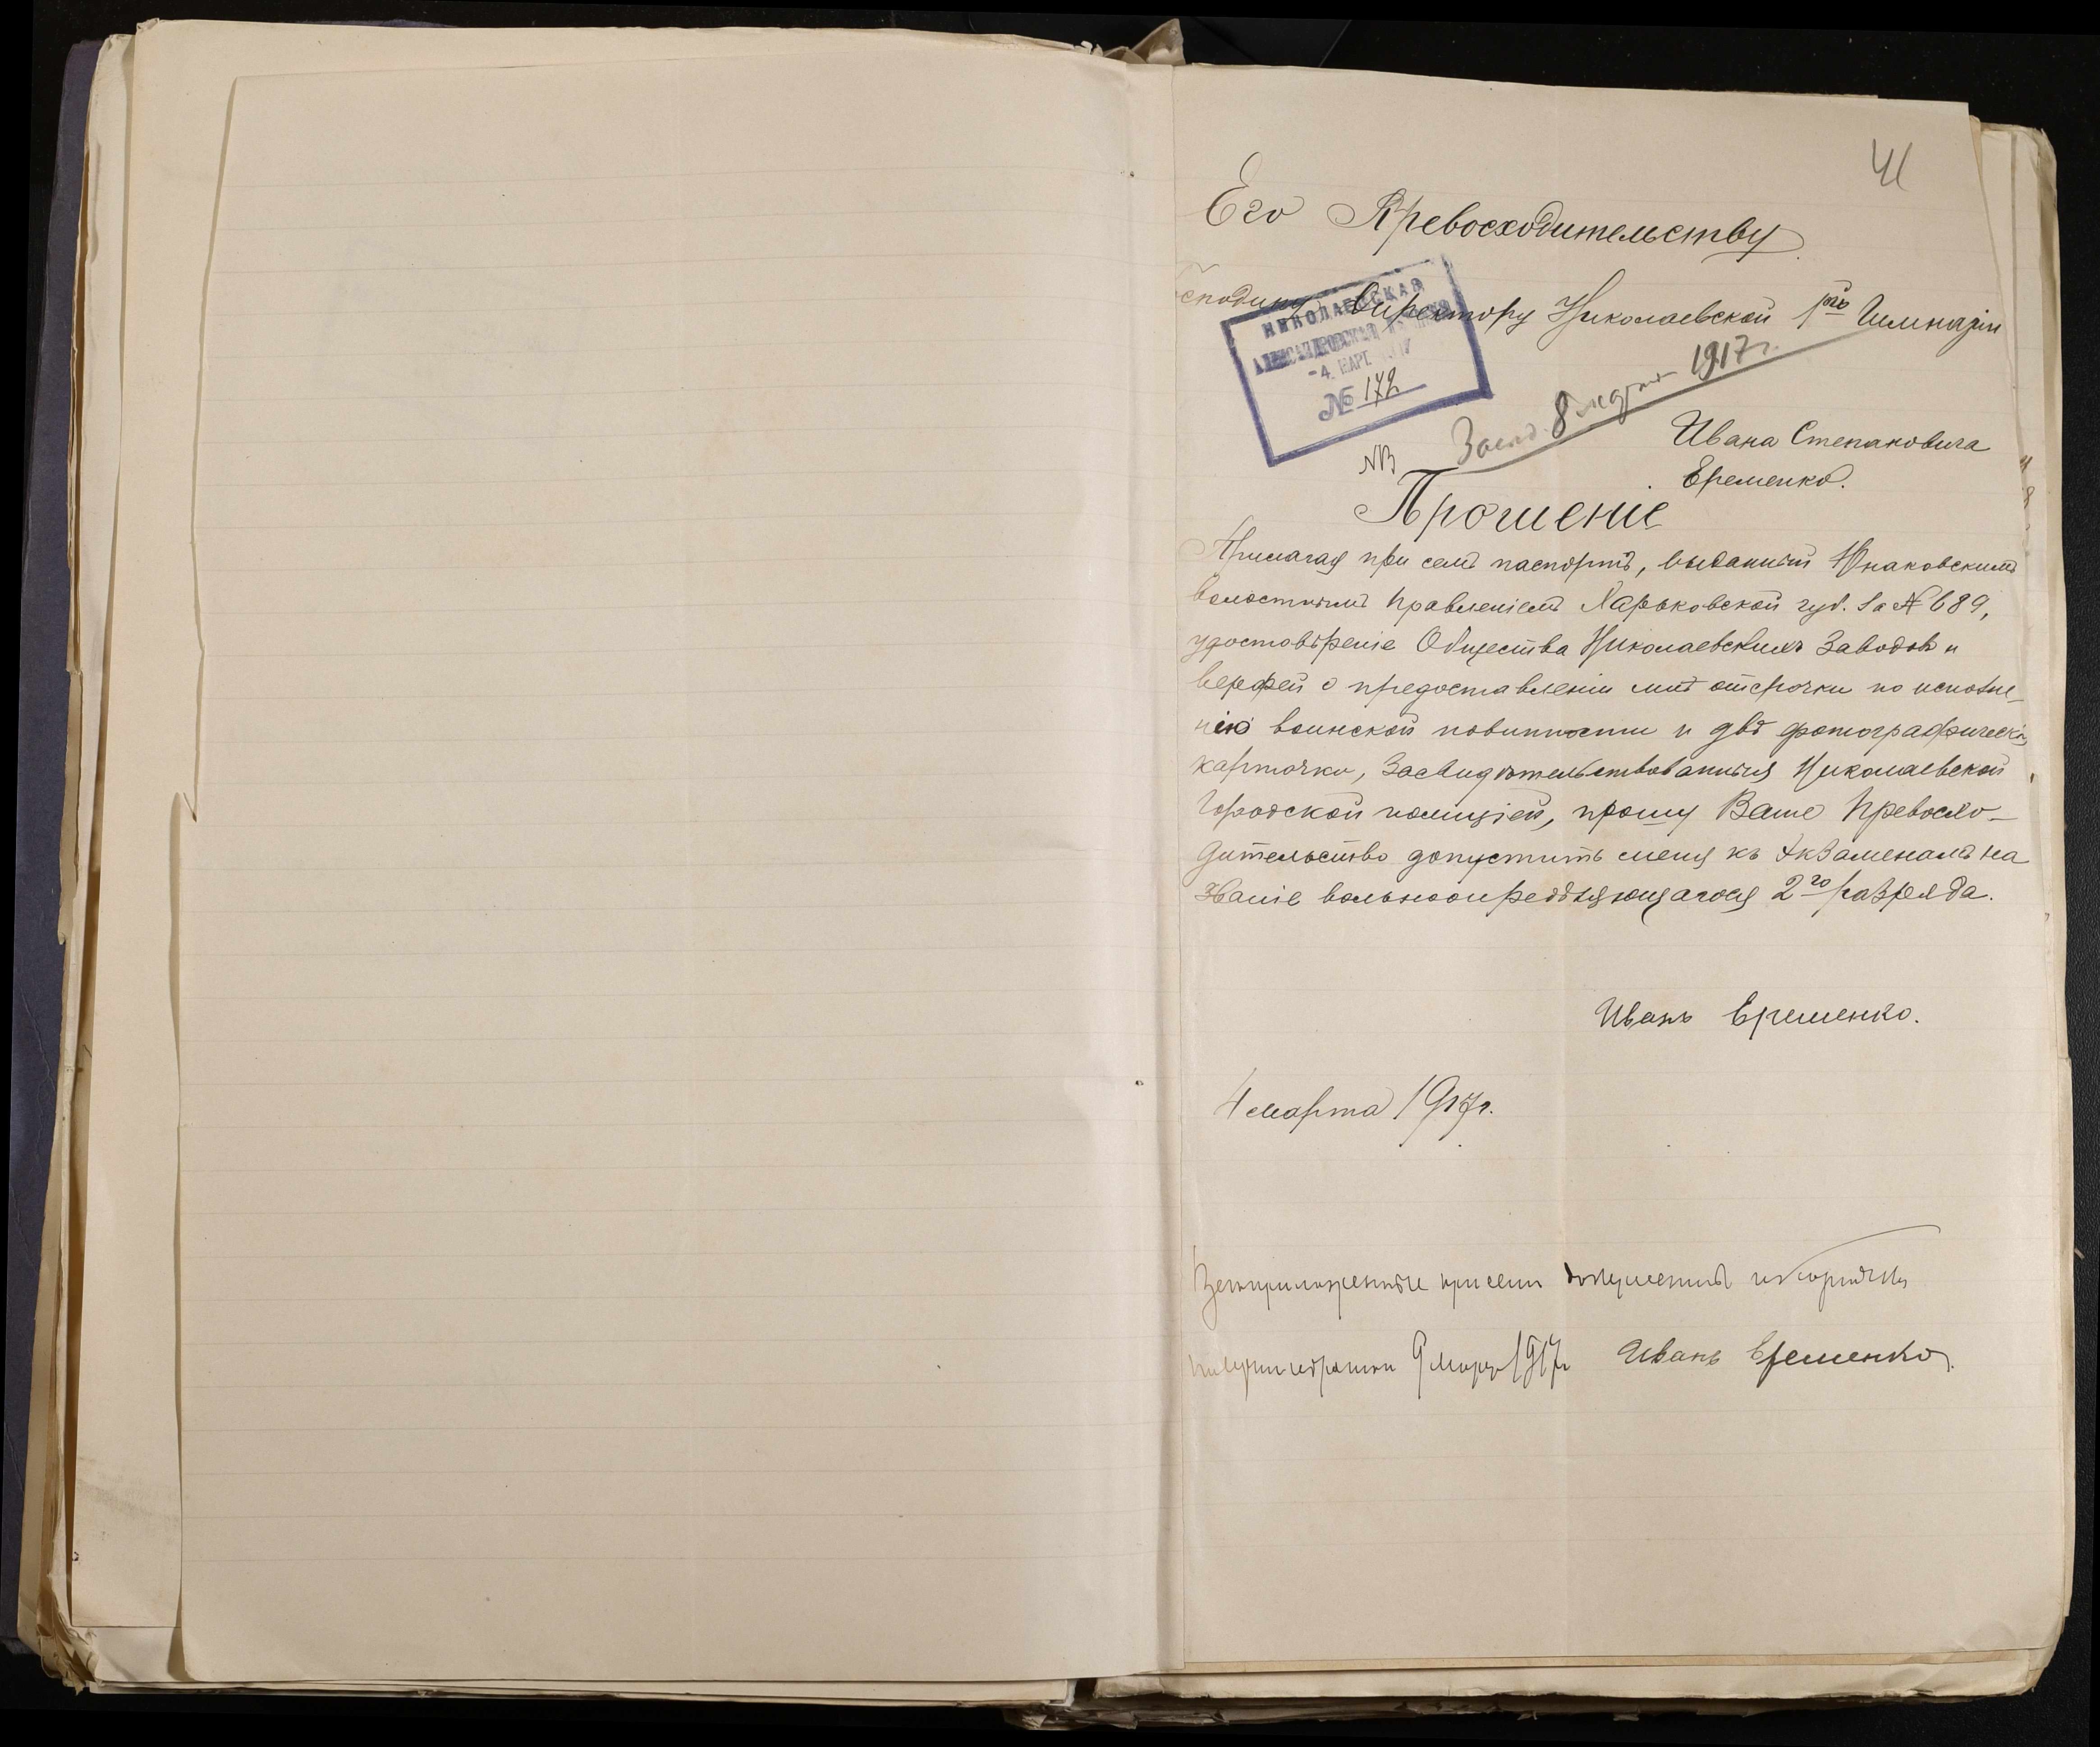 41
Его Превосходительству
Господину Директору Николаевской 1ой Гимназіи
НИКОЛАЕВСКАЯ
АЛЕКСАНДРОВСКАЯ
-4. МАРТ. 1917
№ 172
8 марта 1917 г.
NB
Ивана Степановича
Еременко.
Прошеніе
Прилагая при семъ паспортъ, выданный Юнаковскимъ
волостнымъ правленіемъ Харьковской губ. за № 689,
удостовѣреніе Общества Николаевскихъ Заводовъ и
верфей о предоставленіи мнѣ отсрочки по исполне-
нію воинской повинности и двѣ фотографическія
карточки, засвидѣтельствованныя Николаевской
Городской полиціей, прошу Ваше Превосхо-
дительство допустить меня къ экзаменамъ на
званіе вольноопредѣляющагося 2го разряда.
Иванъ Еременко.
4 марта 1917 г.
приложенные при семъ документы и карточки
получилъ обратно 9 марта 1917 г. Иванъ Еременко.